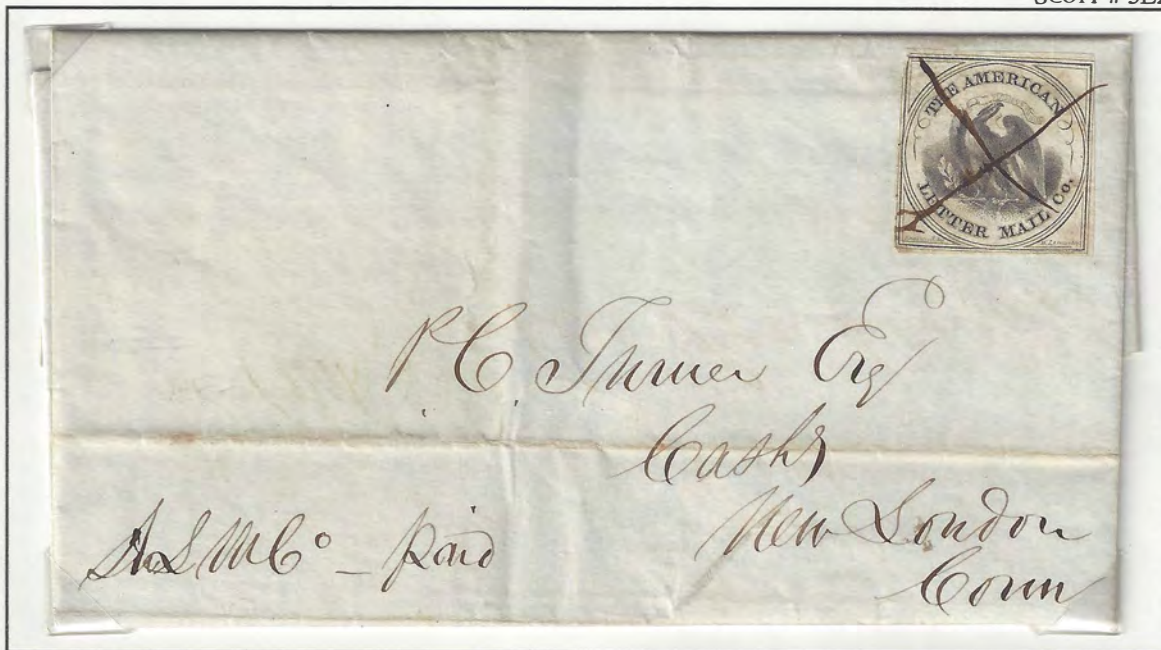 THE AMERICAN
LETTER MAIL Co.
P C. Turner Esq
Cashr
New London
Conn
A L M Co – Paid